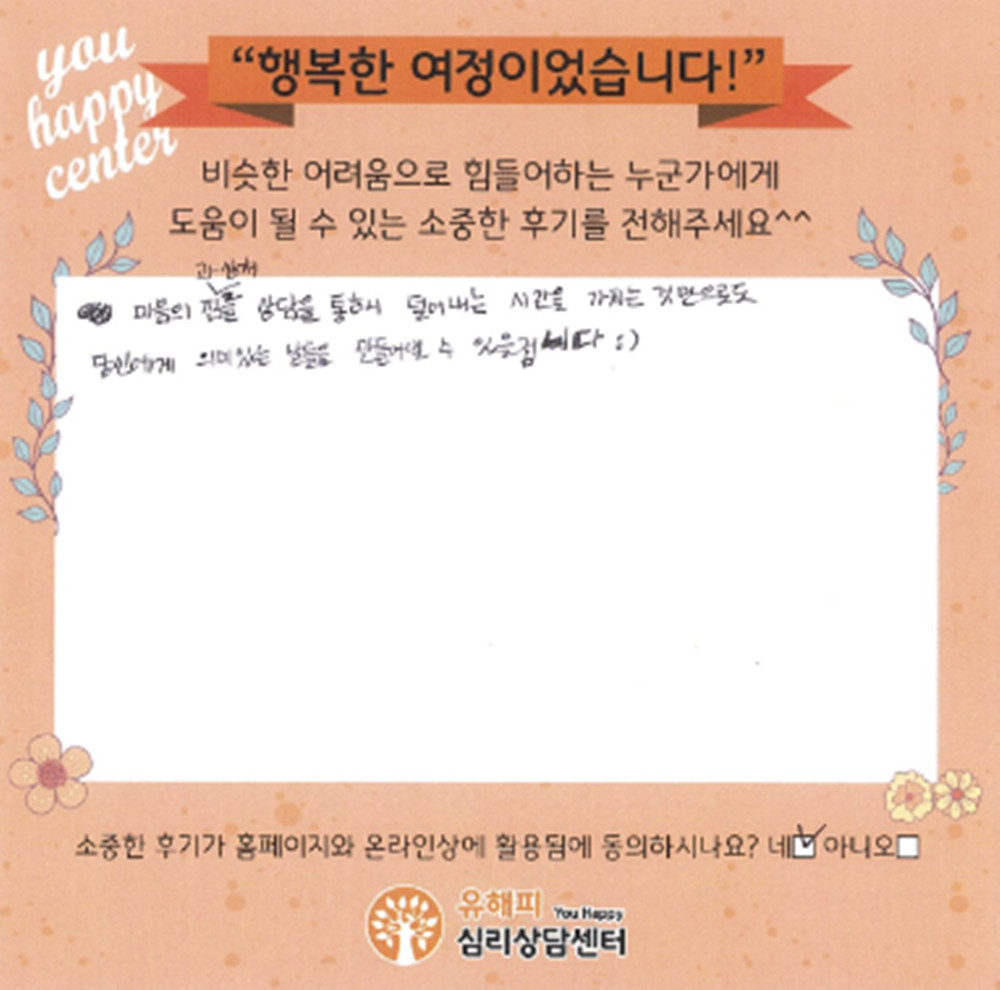 you
happy
center
“행복한 여정이었습니다!”
비슷한 어려움으로 힘들어하는 누군가에게
도움이 될 수 있는 소중한 후기를 전해주세요^^
과 상처
마음의 짐을 상담을 통해서 덜어내는 시간을 가지는 것만으로도
당신에게 의미있는 날들을 만들어낼 수 있을겁니다 :)
소중한 후기가 홈페이지와 온라인상에 활용됨에 동의하시나요? 네 아니오
유해피 You Happy
심리상담센터